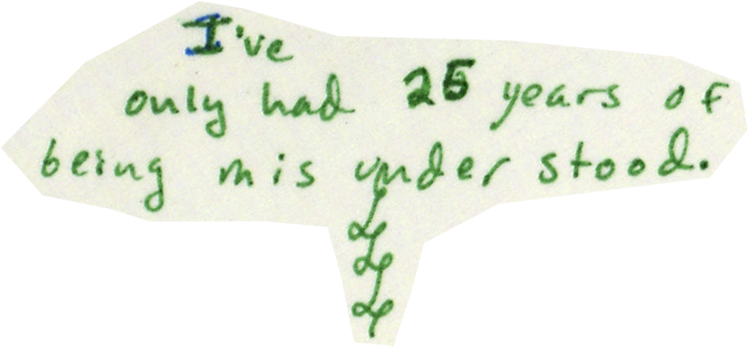 I've
only had 25 years of
being mis under stood.